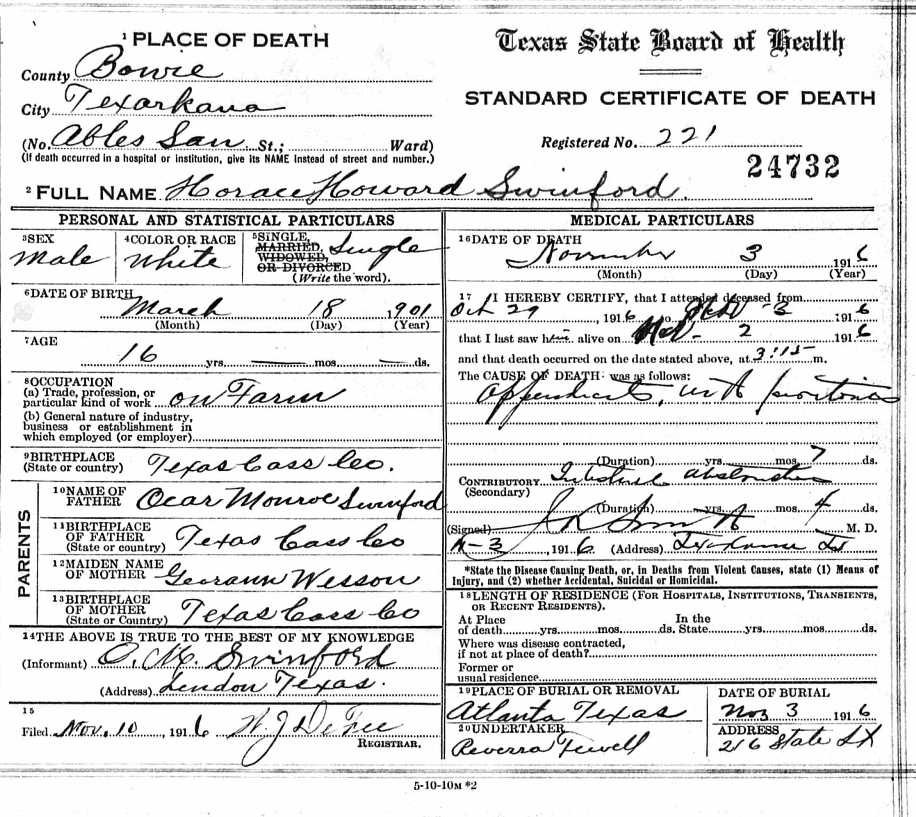 1 PLACE OF DEATH
County Bowie
City Texarkana
(No. Ables San St.; Ward)
(If death occurred in a hospital or institution, give its NAME instead of street and number.)
Texas State Board of Health
STANDARD CERTIFICATE OF DEATH
Registered No. 221
24732
2 FULL NAME Horace Howard Swinford
PERSONAL AND STATISTICAL PARTICULARS
3 SEX
Male
4 COLOR OR RACE
White
5 SINGLE, MARRIED, WIDOWED, OR DIVORCED Single
(Write the word).
6 DATE OF BIRTH
March 18 1901
(Month) (Day) (Year)
7 AGE
16 yrs. — mos. — ds.
8 OCCUPATION
(a) Trade, profession, or
particular kind of work on Farm
(b) General nature of industry,
business or establishment in
which employed (or employer)
9 BIRTHPLACE
(State or country) Texas Cass Co.
PARENTS
10 NAME OF
FATHER Ocar Monroe Swinford
11 BIRTHPLACE
OF FATHER
(State or country) Texas Cass Co
12 MAIDEN NAME
OF MOTHER Georann Wesson
13 BIRTHPLACE
OF MOTHER
(State or Country) Texas Cass Co
14 THE ABOVE IS TRUE TO THE BEST OF MY KNOWLEDGE
(Informant) O. M. Swinford
(Address) Lendon Texas.
15
Filed Nov. 10, 1916
REGISTRAR.
MEDICAL PARTICULARS
16 DATE OF DEATH
November 3 1916
(Month) (Day) (Year)
17 I HEREBY CERTIFY, that I attended deceased from
Oct 29, 1916 to Nov - 3 1916
that I last saw him alive on Nov - 2 1916
and that death occurred on the date stated above, at 3:15 m.
The CAUSE OF DEATH was as follows:
(Duration) yrs. mos. 7 ds.
CONTRIBUTORY
(Secondary)
(Duration) yrs. mos. 4 ds.
(Signed) Smith M. D.
11-3, 1916 (Address)
*State the Disease Causing Death, or, in Deaths from Violent Causes, state (1) Means of
Injury, and (2) whether Accidental, Suicidal or Homicidal.
18 LENGTH OF RESIDENCE (FOR HOSPITALS, INSTITUTIONS, TRANSIENTS,
OR RECENT RESIDENTS).
At Place In the
of death yrs. mos. ds. State yrs. mos. ds.
Where was disease contracted,
if not at place of death?
Former or
usual residence
19 PLACE OF BURIAL OR REMOVAL
Atlanta Texas
DATE OF BURIAL
Nov 3 1916
20 UNDERTAKER
ADDRESS
216 State St
5-10-10M *2